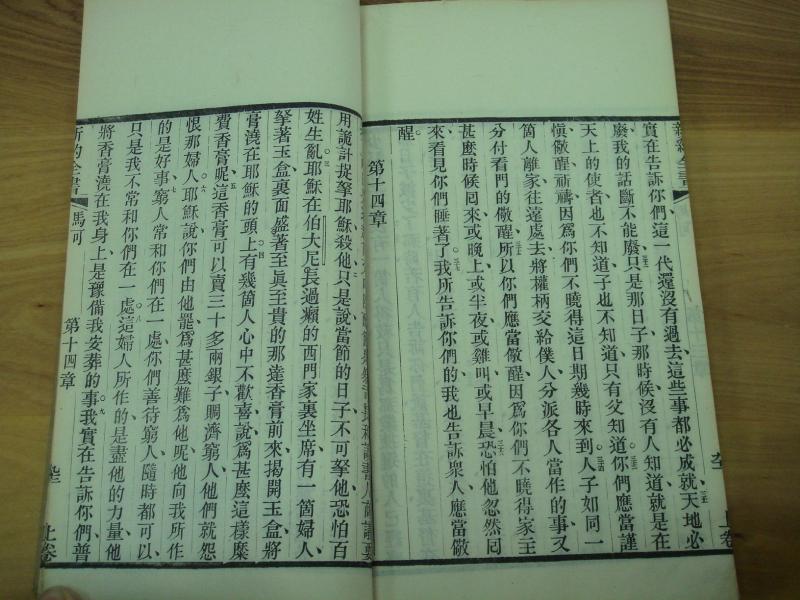 實在告訴你們這一代還沒有過去這些事都必成就天地必
廢我的話斷不能廢只是那日子那時候沒有人知道就是在
天上的使者也不知道子也不知道只有父知道你們應當謹
愼儆醒祈禱因爲你們不曉得這日期幾時來到人子如同一
箇人離家往遠處去將權柄交給僕人分派各人當作的事又
分付看門的儆醒所以你們應當儆醒因爲你們不曉得家主
甚麼時候囘來或晚上或半夜或雞叫或早晨恐怕他忽然囘
來看見你們睡著了我所告訴你們的我也告訴衆人應當儆
醒
第十四章
用詭計捉拏耶穌殺他只是說當節的日子不可拏他恐怕百
姓生亂耶穌在伯大尼長過癩的西門家裏坐席有一箇婦人
拏著玉盒裏面盛著至眞至貴的那達香膏前來揭開玉盒將
膏澆在耶穌的頭上有幾箇人心中不歡喜說爲甚麼這樣糜
費香膏呢這香膏可以賣三十多兩銀子賙濟窮人他們就怨
恨那婦人耶穌說你們由他罷爲甚麼難爲他呢他向我所作
的是好事窮人常和你們在一處你們善待窮人隨時都可以
只是我不常和你們在一處這婦人所作的是盡他的力量他
將香膏澆在我身上是豫備我安葬的事我實在告訴你們普
新約全書
馬可
第十四章
上卷